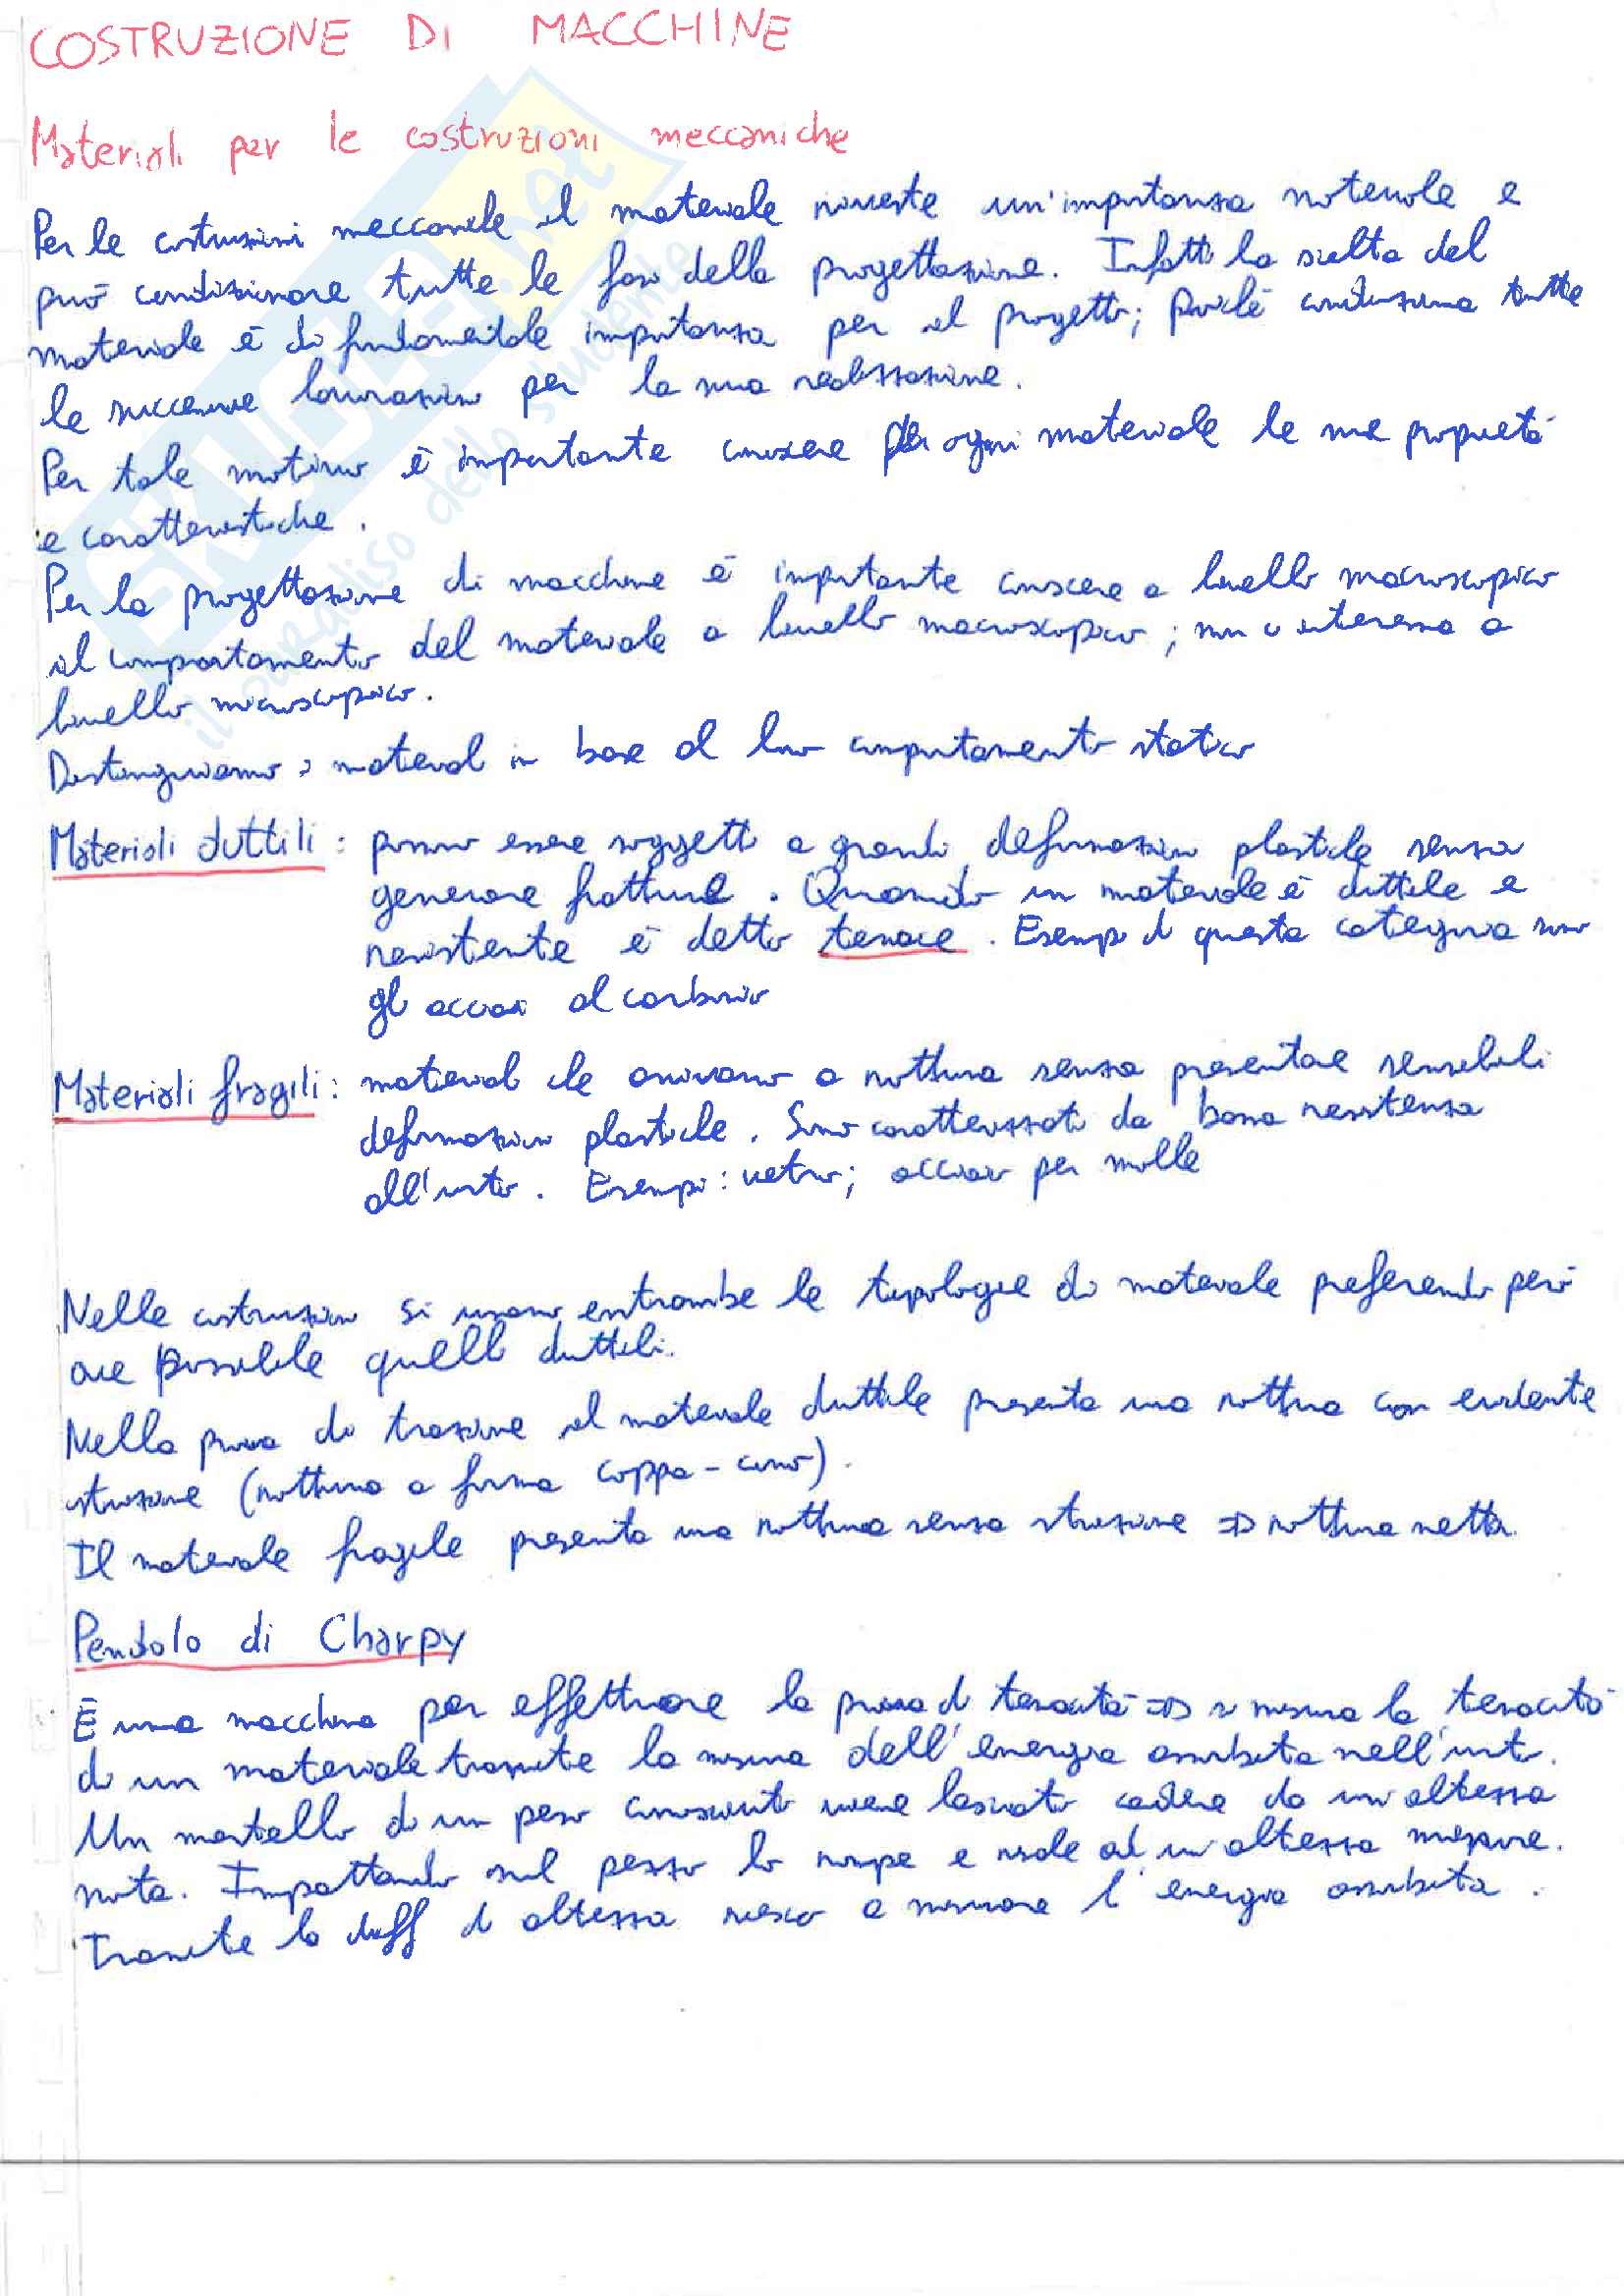 COSTRUZIONE DI MACCHINE
Materiali per le costruzioni meccaniche
Per le costruzioni meccaniche il materiale riveste un'importanza notevole e
può condizionare tutte le fasi della progettazione. Infatti la scelta del
materiale è di fondamentale importanza per il progetto; poiché condiziona tutte
le successive lavorazioni per la sua realizzazione.
Per tale motivo è importante conoscere per ogni materiale le sue proprietà
e caratteristiche.
Per la progettazione di macchine è importante conoscere a livello macroscopico
il comportamento del materiale a livello macroscopico; non ci interessa a
livello microscopico.
Distinguiamo i materiali in base al loro comportamento statico
Materiali duttili: possono essere soggetti a grandi deformazioni plastiche senza
generare fratture. Quando un materiale è duttile e
resistente è detto tenace. Esempi di questa categoria sono
gli acciai al carbonio
Materiali fragili: materiali che arrivano a rottura senza presentare sensibili
deformazioni plastiche. Sono caratterizzati da bassa resistenza
all'urto. Esempi: vetro; acciaio per molle
Nelle costruzioni si usano entrambe le tipologie di materiale preferendo però
ove possibile quelli duttili.
Nella prova di trazione il materiale duttile presenta una rottura con evidente
strizione (rottura a forma coppa-cono).
Il materiale fragile presenta una rottura senza strizione ⇒ rottura netta.
Pendolo di Charpy
È una macchina per effettuare la prova di tenacità ⇒ si misura la tenacità
di un materiale tramite la misura dell'energia assorbita nell'urto.
Un martello di un peso conosciuto viene lasciato cadere da un'altezza
nota. Impattando sul pezzo lo rompe e risale ad un'altezza minore.
Tramite la diff di altezza riesco a misurare l'energia assorbita.
SKUOLA.net
il paradiso dello studente